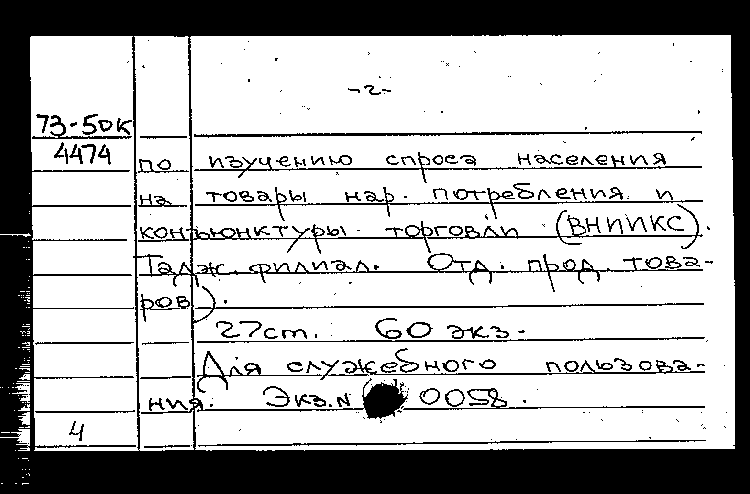 -2-
73-5дк
4474 по изучению спроса населения
на товары нар. потребления и
конъюнктуры торговли (ВНИИКС).
Тадж. филиал. Отд. прод. това-
ров).
27ст. 60 экз.
Для служебного пользова-
ния. Экз.N 0058.
4